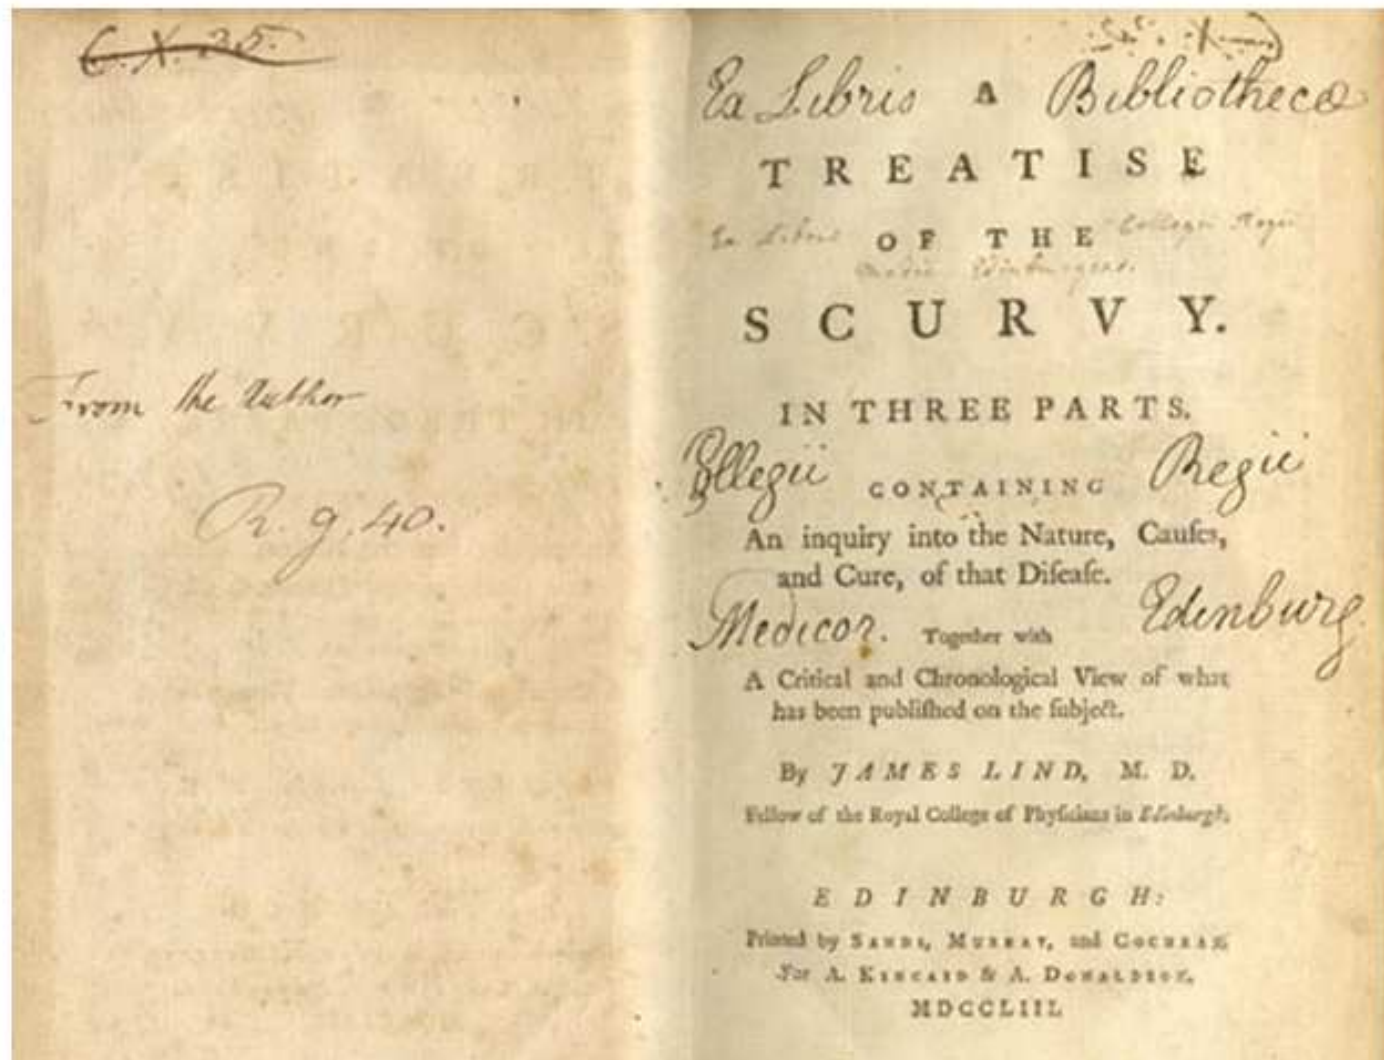 C. X. 25.
From the Author
R. g. 40.
Ex Libris A Bibliothecæ
TREATISE
Ex Libris OF THE Collegii Regii
Medic. Edinburgens.
SCURVY.
IN THREE PARTS.
Collegii CONTAINING Regii
An inquiry into the Nature, Cauſes,
and Cure, of that Diſeaſe.
Medicor. Together with Edinburg.
A Critical and Chronological View of what
has been publiſhed on the ſubject.
By JAMES LIND, M. D.
Fellow of the Royal College of Phyſicians in Edinburgh.
EDINBURGH:
Printed by SANDS, MURRAY, and COCHRAN,
For A. KINCAID & A. DONALDSON,
MDCCLIII.